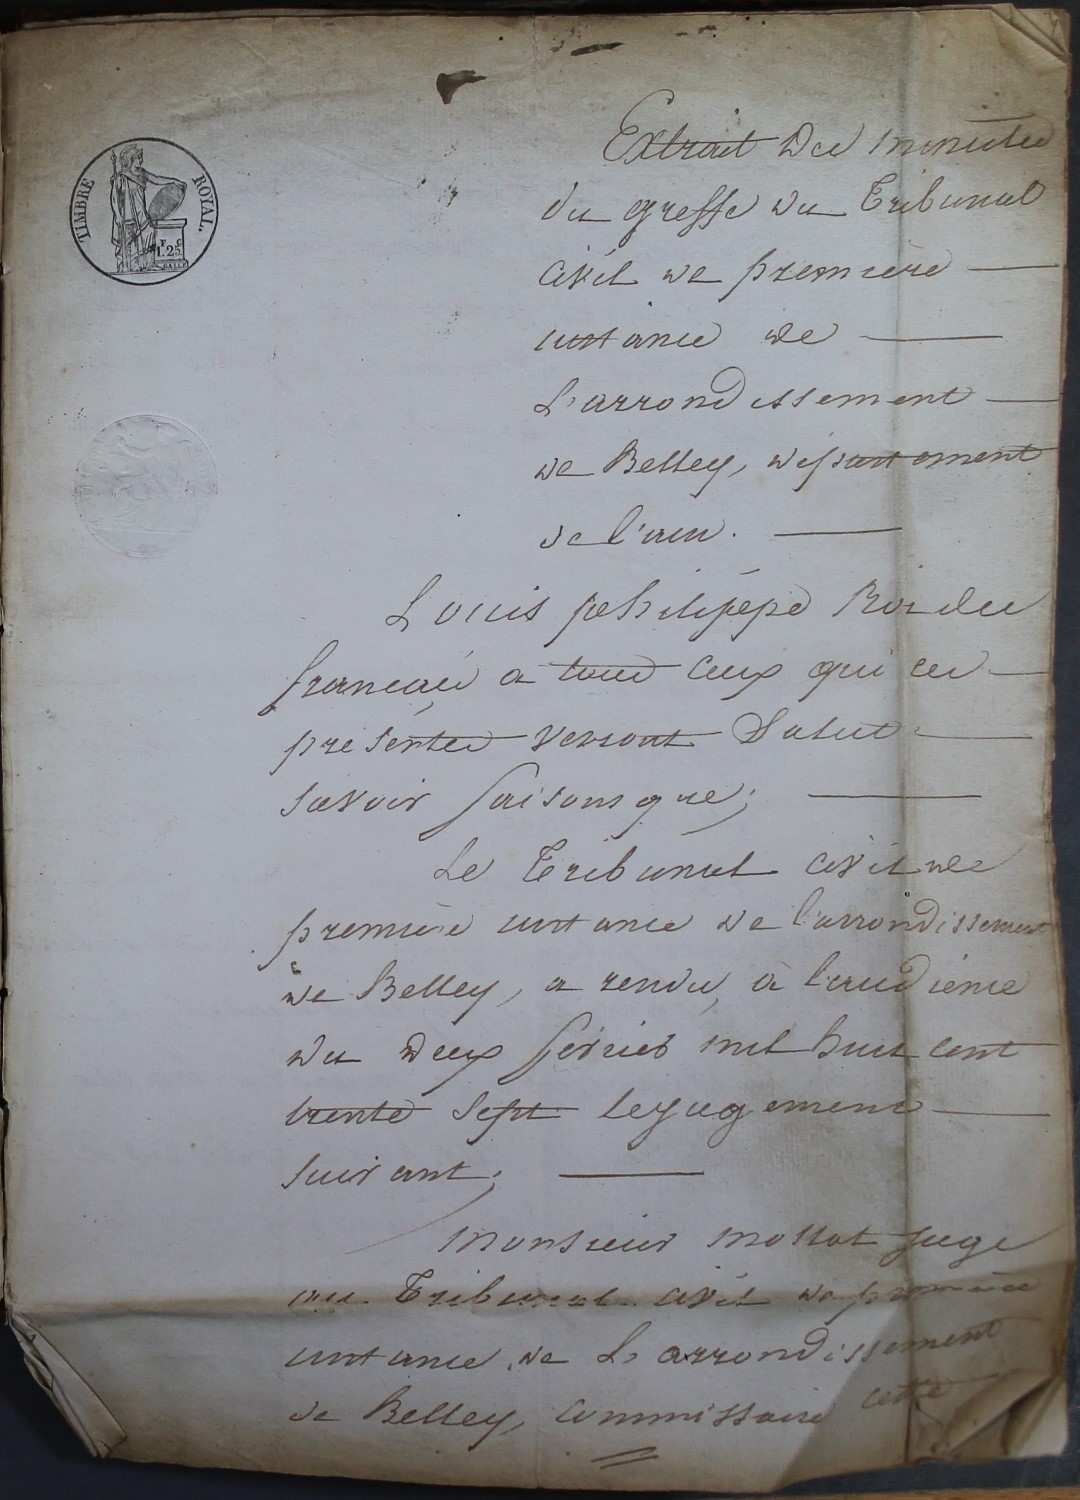 TIMBRE ROYAL.
F. C.
1.25
Extrait des minutes
du greffe du Tribunal
civil de première
instance de
L'arrondissement
de Belley, département
de l'ain.
Louis philippe Roi des
français a tous ceux qui ces
présentes verront Salut
savoir faisons que;
Le Tribunal civil de
première instance de l'arrondissement
de Belley, a rendu, à l'audience
du deux février mil huit cent
trente sept le jugement
suivant;
Monsieur mollot juge
au Tribunal civil de première
instance de L'arrondissement
de Belley, commissaire cette